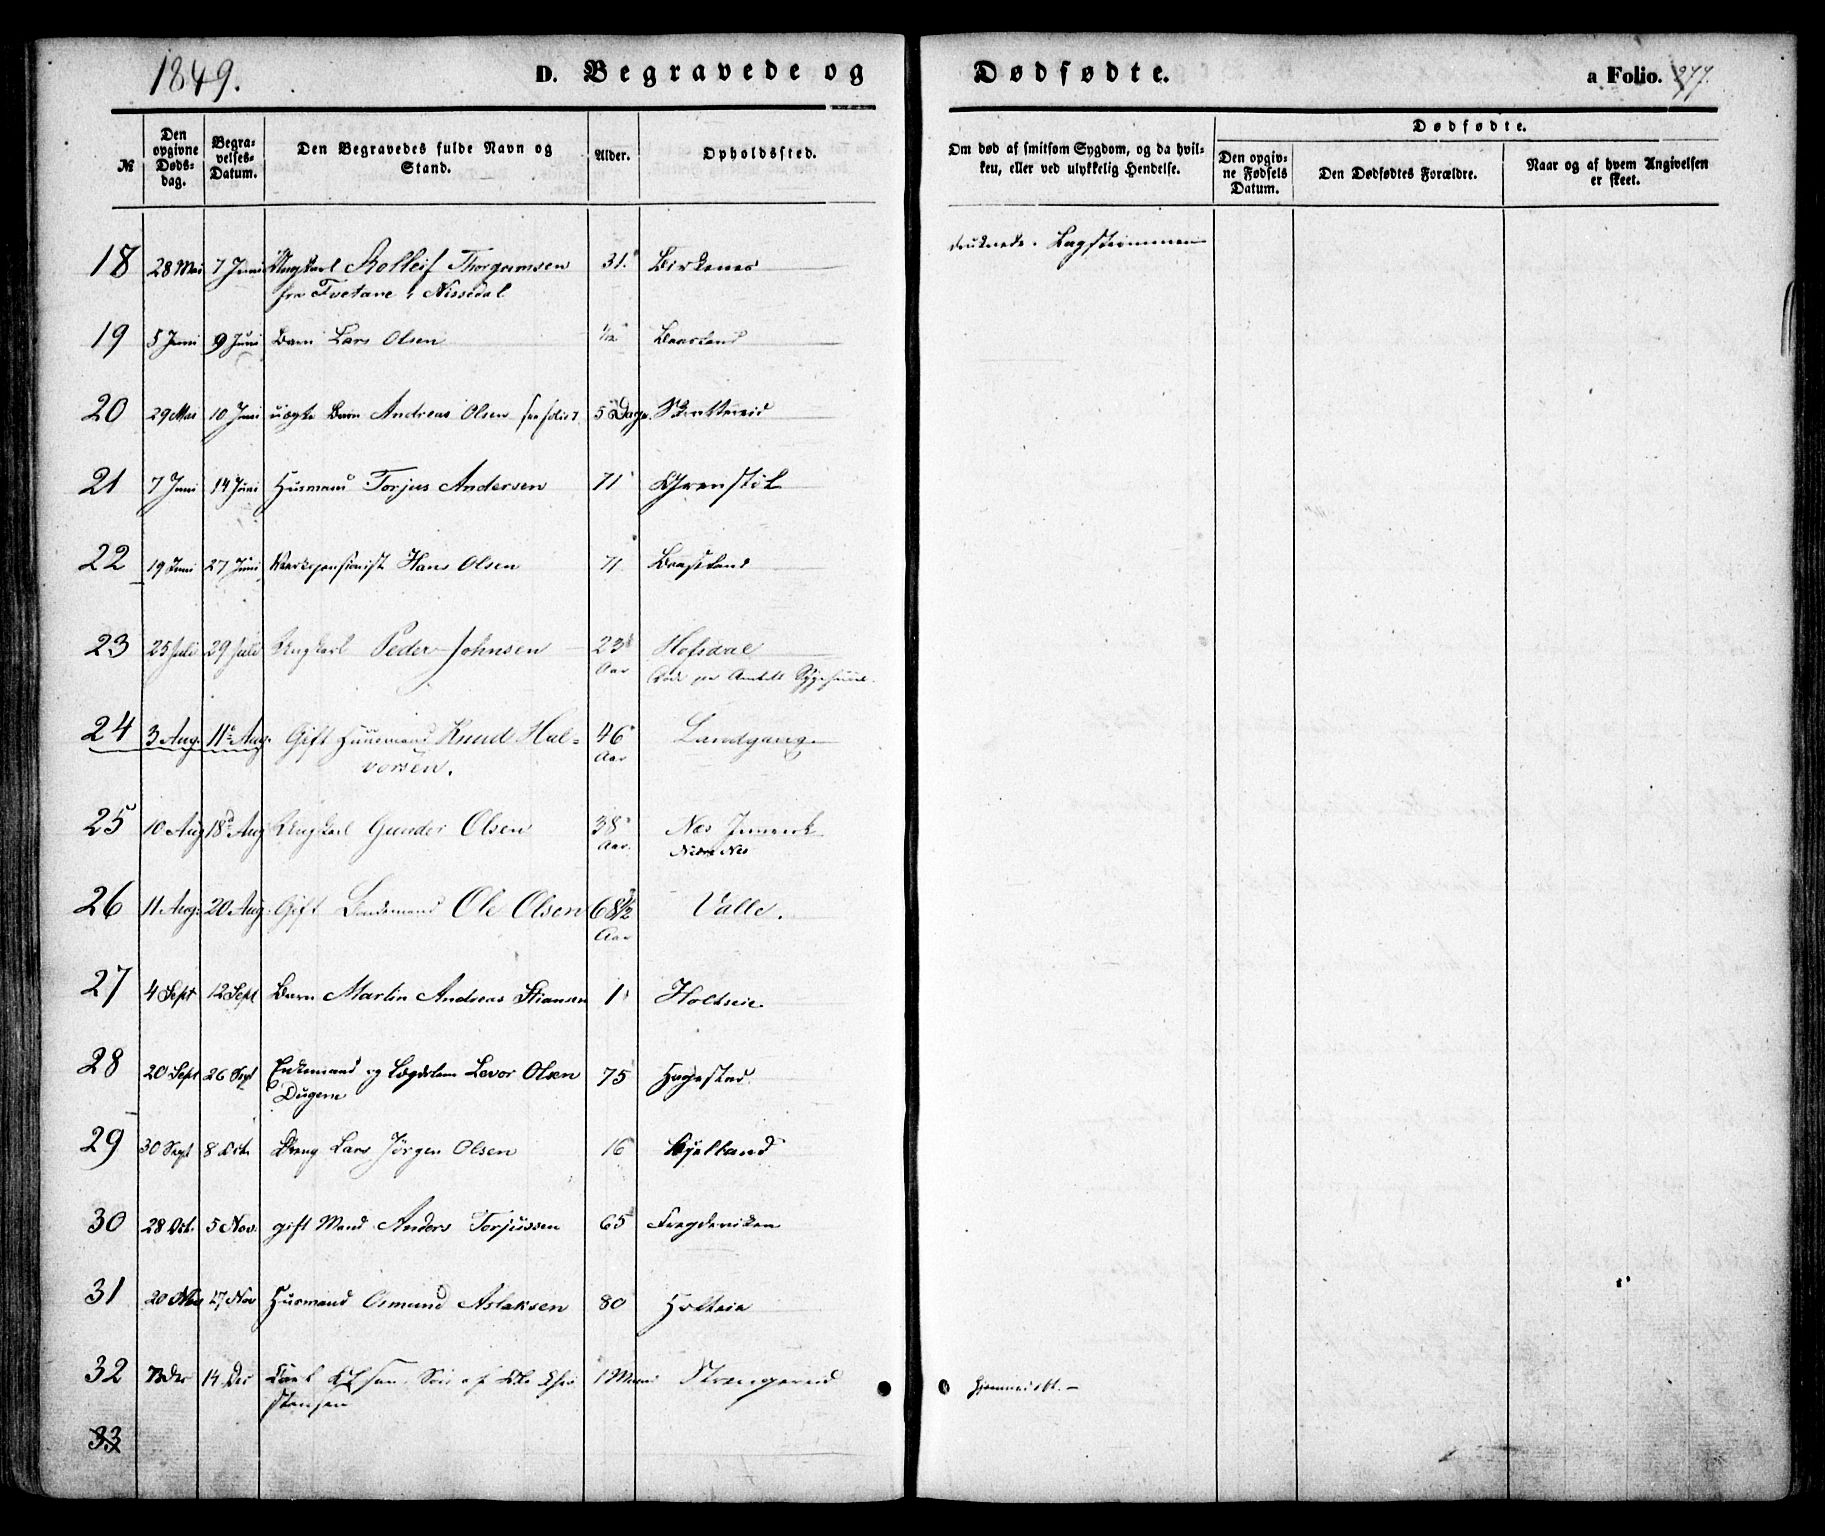 1849.
D. Begravede og Dødfødte.
a Folio. 277.
№
Den opgivne Døds-dag.
Begra-velses-Datum.
Den Begravedes fulde Navn og Stand.
Alder.
Opholdssted.
Om død af smitsom Sygdom, og da hvil-ken, eller ved ulykkelig Hendelse.
Dødfødte.
Den opgiv-ne Fødsels Datum.
Den Dødfødtes Forældre.
Naar og af hvem Angivelsen er skeet.
18 28 Mai 7 Juni Ungkarl Rolleif Thorgrimsen 31. Birkenes druknede i
fra Tvetane i Nissedal
19 5 Juni 9 Juni Barn Lars Olsen 1/12
20 29 Mai 10 Juni uægte Barn Andreas Olsen 5 Dage
21 7 Juni 14 Juni Husmand Torjus Andersen 71
22 19 Juni 27 Juni Hans Olsen 71
23 25 Juli 29 Juli Ungkarl Peder Johnsen 23 Hofsdal
Aar
24 3 Aug. 11 Aug. Gift Huusmand Knud Hal- 46 Landgang
vorsen. Aar
25 10 Aug 18 Aug Ungkarl Gunder Olsen 38 Nes Jernverk
Aar. Nedre Nes
26 11 Aug. 20 Aug. Gift Ole Olsen 68 1/2 Valle.
Aar
27 4 Sept 12 Sept Barn Martin Andreas Stiansen 1 Holteie
28 20 Sept 26 Sept Enkemand og Lægdslem Levor Olsen 75 Hagestad
29 30 Sept 8 Oct. Dreng Lars Jörgen Olsen 16 Kjelland
30 28 Oct. 5 Nov. gift Mand Anders Torjussen 65
31 17 Nov Husmand Osmund Aslaksen 80 Holteie
32 14 Dec Søn af Ole 1 Maaned hjemmedøbt.
33